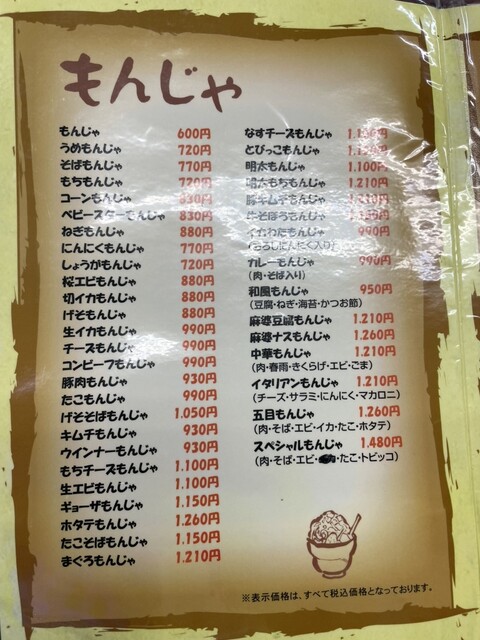 もんじゃ
もんじゃ 600円
うめもんじゃ 720円
そばもんじゃ 770円
もちもんじゃ 720円
コーンもんじゃ 830円
ベビースターもんじゃ 830円
ねぎもんじゃ 880円
にんにくもんじゃ 770円
しょうがもんじゃ 720円
桜エビもんじゃ 880円
切イカもんじゃ 880円
げそもんじゃ 880円
生イカもんじゃ 990円
チーズもんじゃ 990円
コンビーフもんじゃ 990円
豚肉もんじゃ 930円
たこもんじゃ 990円
げそそばもんじゃ 1.050円
キムチもんじゃ 930円
ウインナーもんじゃ 930円
もちチーズもんじゃ 1.100円
生エビもんじゃ 1.100円
ギョーザもんじゃ 1.150円
ホタテもんじゃ 1.260円
たこそばもんじゃ 1.150円
まぐろもんじゃ 1.210円
なすチーズもんじゃ
とびっこもんじゃ
明太もんじゃ 1.100円
明太もちもんじゃ 1.210円
豚キムチもんじゃ
牛そぼろもんじゃ
イカわたもんじゃ 990円
(おろしにんにく入り)
カレーもんじゃ 990円
(肉・そば入り)
和風もんじゃ 950円
(豆腐・ねぎ・海苔・かつお節)
麻婆豆腐もんじゃ 1.210円
麻婆ナスもんじゃ 1.260円
中華もんじゃ 1.210円
(肉・春雨・きくらげ・エビ・ごま)
イタリアンもんじゃ 1.210円
(チーズ・サラミ・にんにく・マカロニ)
五目もんじゃ 1.260円
(肉・そば・エビ・イカ・たこ・ホタテ)
スペシャルもんじゃ 1.480円
(肉・そば・エビ・・たこ・トビッコ)
※表示価格は、すべて税込価格となっております。